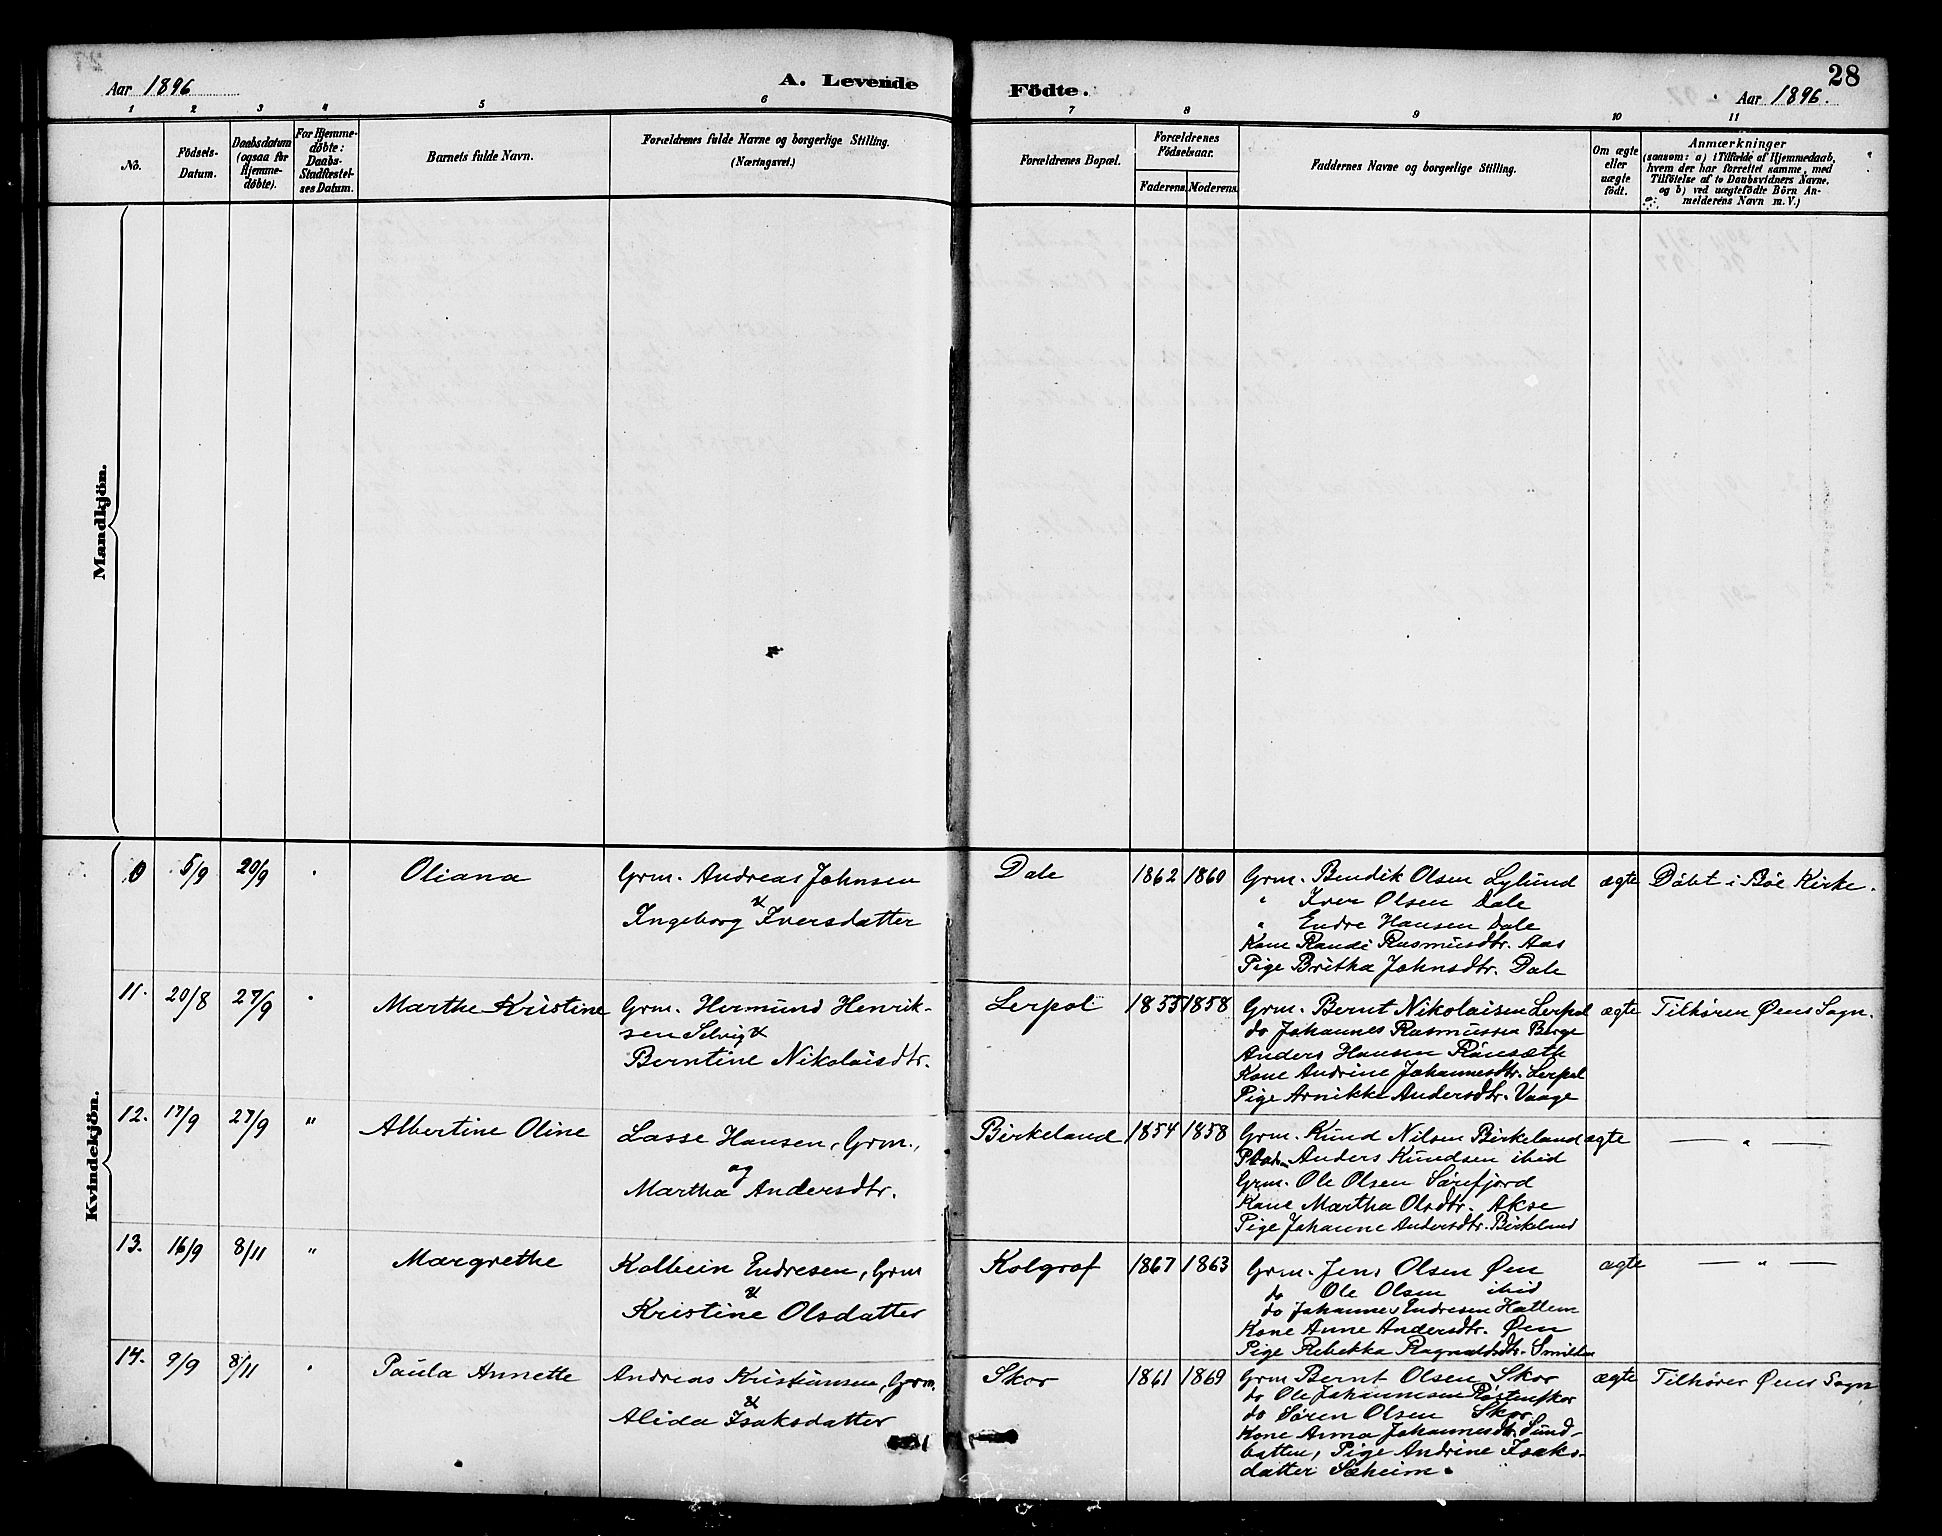 Aar 1896
A. Levende
Födte.
28
Aar 1896.
1 2 3 4 5 6 7 8 9 10 11
No.
Födsels-
Datum.
Daabsdatum
(ogsaa for
Hjemme-
døbte).
For Hjemme-
döbte:
Daabs-
Stadfæstel-
ses Datum.
Barnets fulde Navn.
Forældrenes fulde Navne og borgerlige Stilling.
(Næringsvei.)
Forældrenes Bopæl.
Forældrenes
Födselsaar.
Faderens. Moderens.
Faddernes Navne og borgerlige Stilling.
Om ægte
eller
uægte
födt.
Anmærkninger
(saasom: a) i Tilfælde af Hjemmedaab,
hvem der har forrettet samme, med
Tilföielse af to Daabsvidners Navne,
og b) ved uægtefödte Börn An-
melderens Navn m. V.)
Mandkjön.
Kvindekjön.
0 5/9 20/9 Oliana
Grm. Andreas Johnsen
&
Ingeborg Iversdatter
Dale 1862 1860
Grm. Bendik Olsen Lylund
" Iver Olsen Dale
" Endre Hansen Dale
Kone Randi Rasmusdtr. Aas
Pige Britha Johnsdtr. Dale
ægte Döbt i Böe Kirke.
11. 20/8 27/9 Marthe Kristine
Grm. Hermund Henrik-
sen Selvig &
Berntine Nikolaisdtr.
Lerpol 1855 1858
Grm. Bernt Nikolaisen Lerpol
do Johannes Rasmussen Berge
Anders Hansen Rönsæth
Kone Andrine Johannesdtr. Lerpol
Pige Arnikke Andersdtr. Vaage
ægte Tilhören Öens Sogn.
12. 17/9 27/9 " Albertine Oline
Lasse Hansen, Grm.,
og
Martha Andersdtr.
Birkeland 1854 1858
Grm. Knud Nilsen Birkeland
Anders Knudsen ibid
Grm. Ole Olsen Sörefjord
Kone Martha Olsdtr. Akse
Pige Johanne Andersdtr. Birkeland
ægte — " —
13. 16/9 8/11 " Margrethe
Kolbein Endresen, Grm
&
Kristine Olsdatter
Kolgrof 1867 1863
Grm. Jens Olsen Öen
do Ole Olsen ibid
do Johannes Endresen Hatlem
Kone Anne Andersdtr. Öen
Pige Rebekka Ragnaldsdtr. Smilden
ægte — " —
14. 9/9 8/11 Paula Annette
Andreas Kristiansen, Grm.
&
Alida Isaksdatter
Skor 1861 1869
Grm Bernt Olsen Skor
do Ole Johannesen Röstenskor
do Sören Olsen Skor
Kone Anna Johannesdtr Sund-
batten, Pige Andrine Isaks-
datter Sæheim.
ægte Tilhörer Öens Sogn